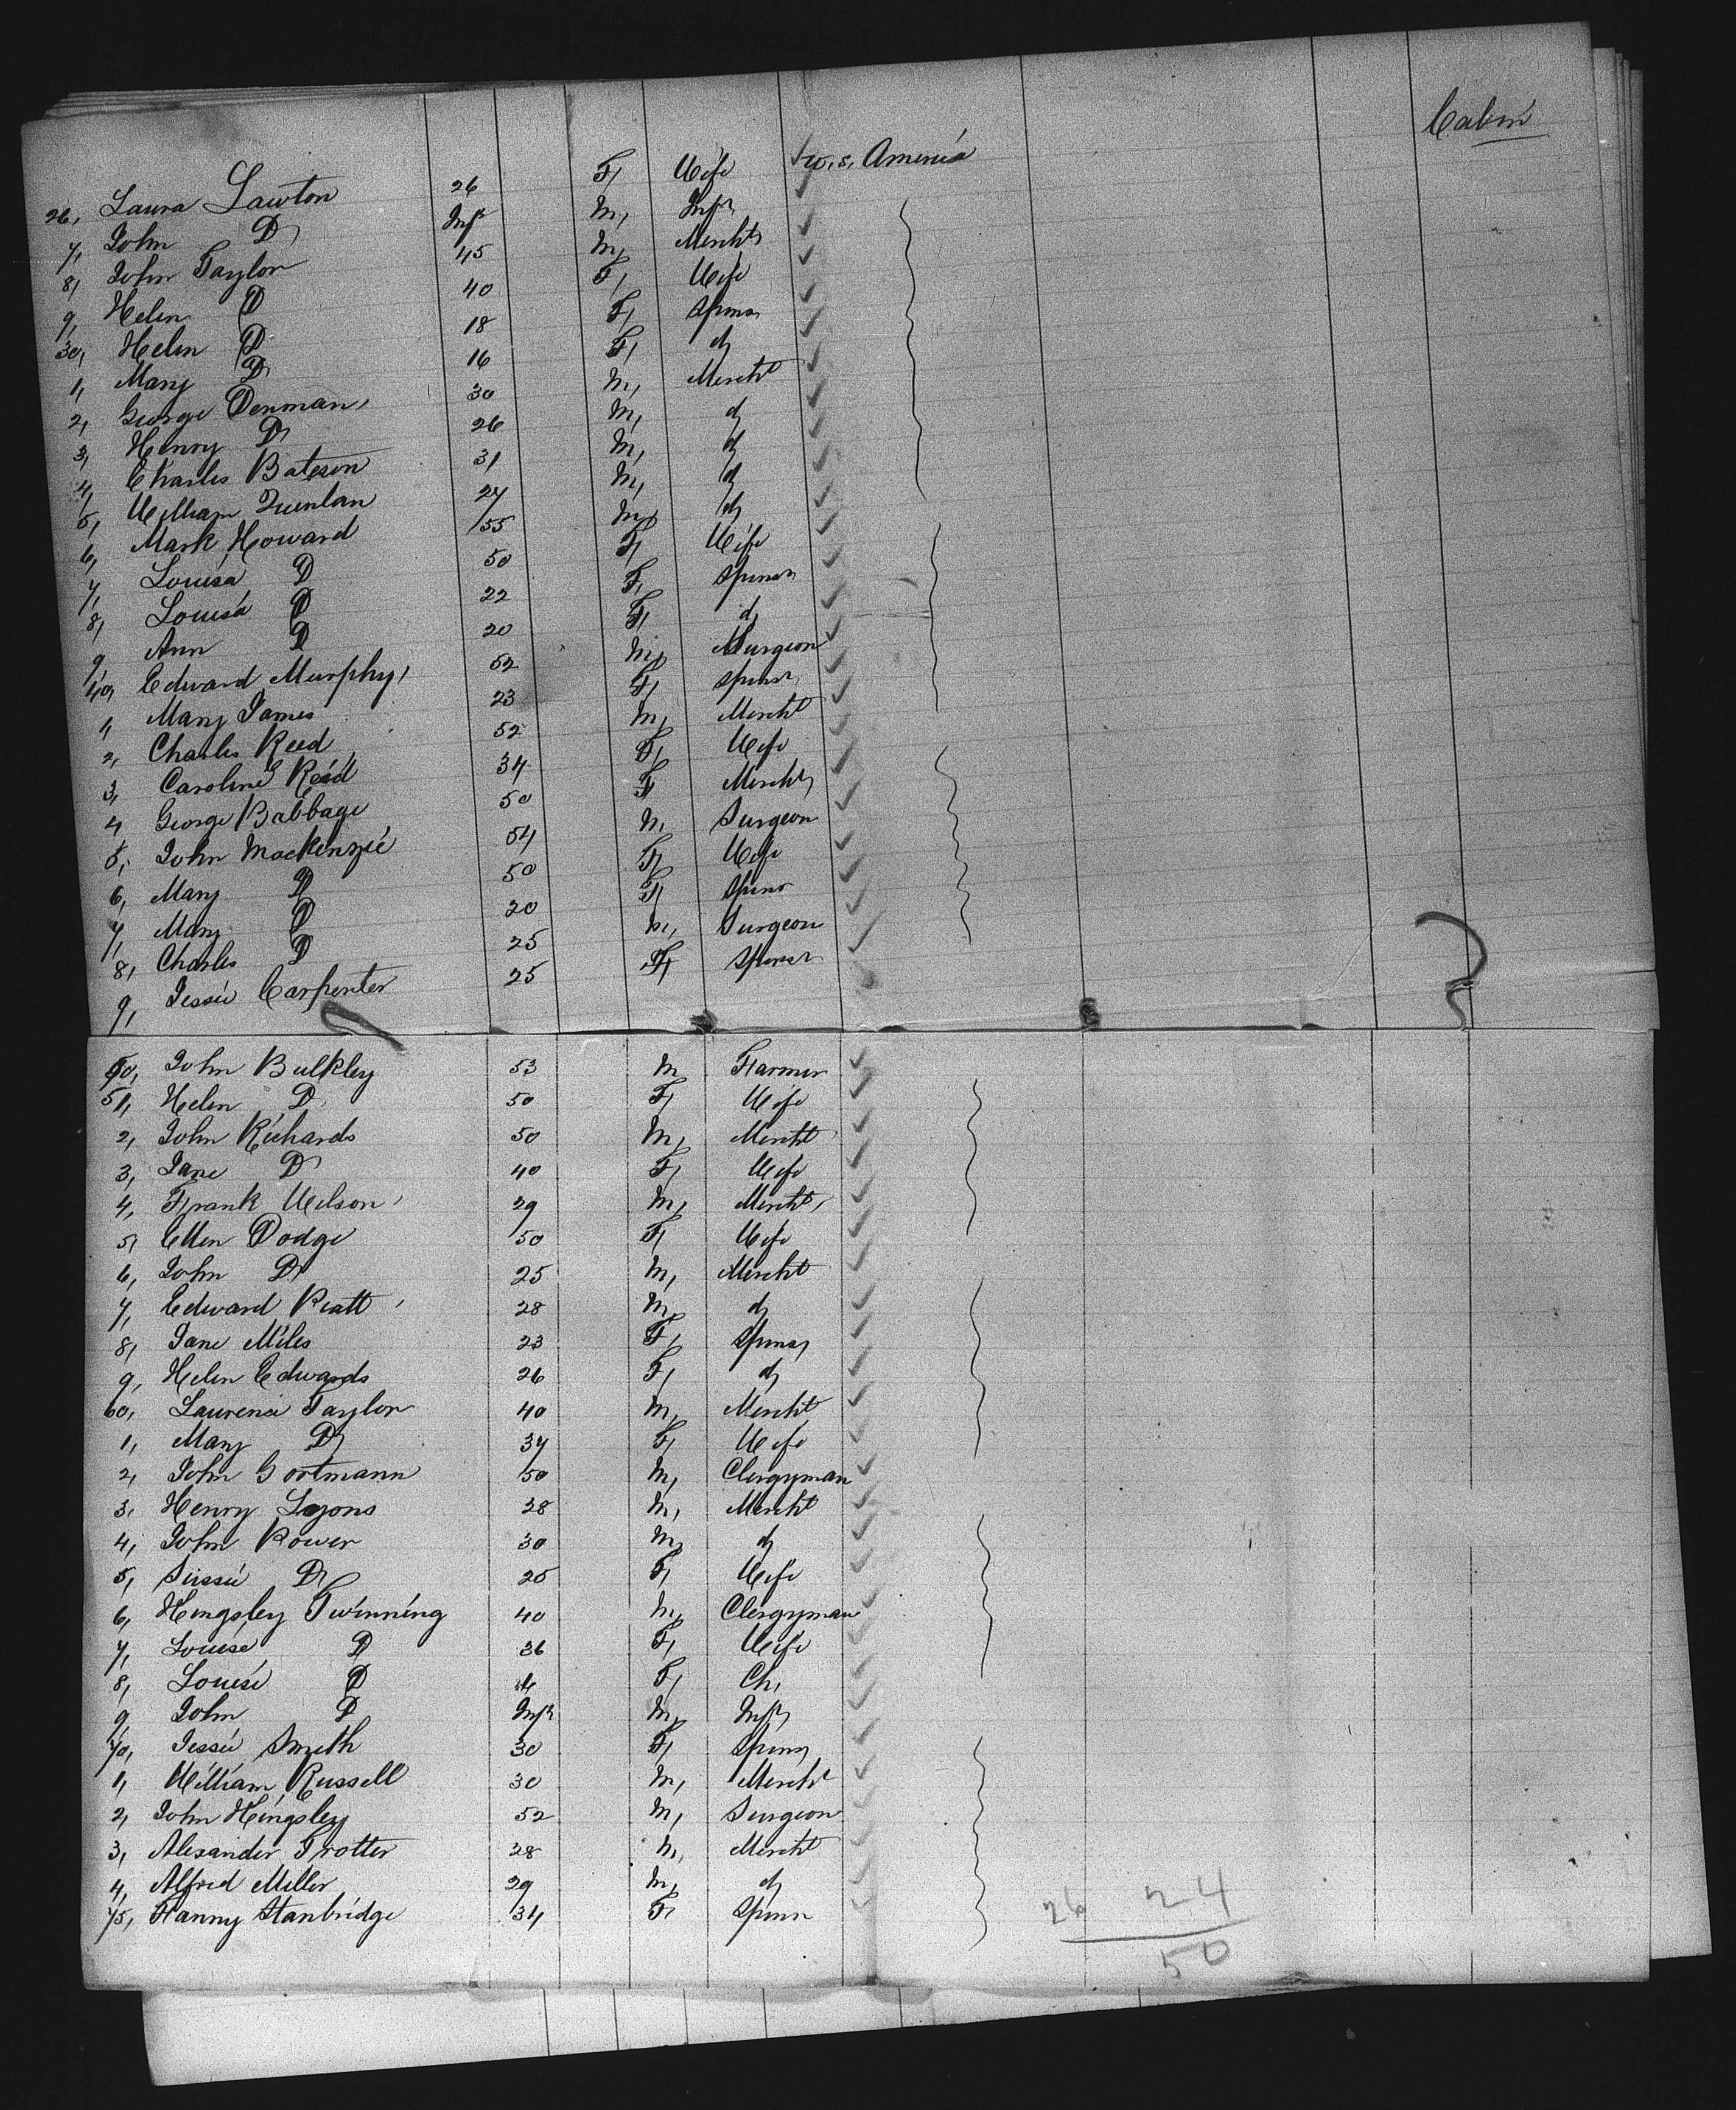 Cabin
26, Laura Lawton 26 F, Wife U.S. America
7, John D, Inft M, Inft
8, John Taylor 45 M, Mercht
9, Helen D 40 F, Wife
30, Helen D 18 F, Spins
1, Mary D 16 F, do
2, George Denman, 30 M, Mercht
3, Henry D, 26 M, do
4, Charles Bateson 31 M, do
5, William Quinlan 27 M, do
6, Mark Howard 55 M, do
7, Louisa D 50 F, Wife
8, Louisa D 22 F, Spinsr
9, Ann D 20 F, do
40, Edward Murphy, 52 M, Surgeon
1, Mary James 23 F, Spinsr
2, Charles Reed 52 M, Mercht
3, Caroline Reid 34 F, Wife
4, George Babbage 50 F Mercht
5, John Mackenzie 54 M, Surgeon
6, Mary D 50 F, Wife
7, Mary D 20 F, Spins
8, Charles D 25 M, Surgeon
9, Jessie Carpenter 25 F, Spinsr
50, John Bulkley 53 M Farmer
51, Helen D 50 F, Wife
2, John Richards 50 M, Mercht
3, Jane D 40 F, Wife
4, Frank Wilson, 29 M, Mercht,
5, Ellen Dodge 50 F, Wife
6, John D, 25 M, Mercht
7, Edward Piatt, 28 M, do
8, Jane Miles 23 F, Spins,
9, Helen Edwards 26 F, do
60, Laurence Taylor 40 M, Mercht
1, Mary D, 37 F, Wife
2, John Gortmann 50 M, Clergyman
3, Henry Lyons 28 M, Mercht
4, John Power 30 M, do
5, Sissie D, 25 F, Wife
6, Kingsley Twinning 40 M, Clergyman
7, Louise D 36 F, Wife
8, Louise D 4 F, Ch,
9, John D Inft M, Inft,
70, Jessie Smith 30 F, Spins,
1, William Russell 30 M, Mercht
2, John Kingsley 52 M, Surgeon
3, Alexander Trotter 28 M, Mercht
4, Alfred Miller 29 M, do
75, Fanny Stanbridge 34 F, Spinsr
26 24
50